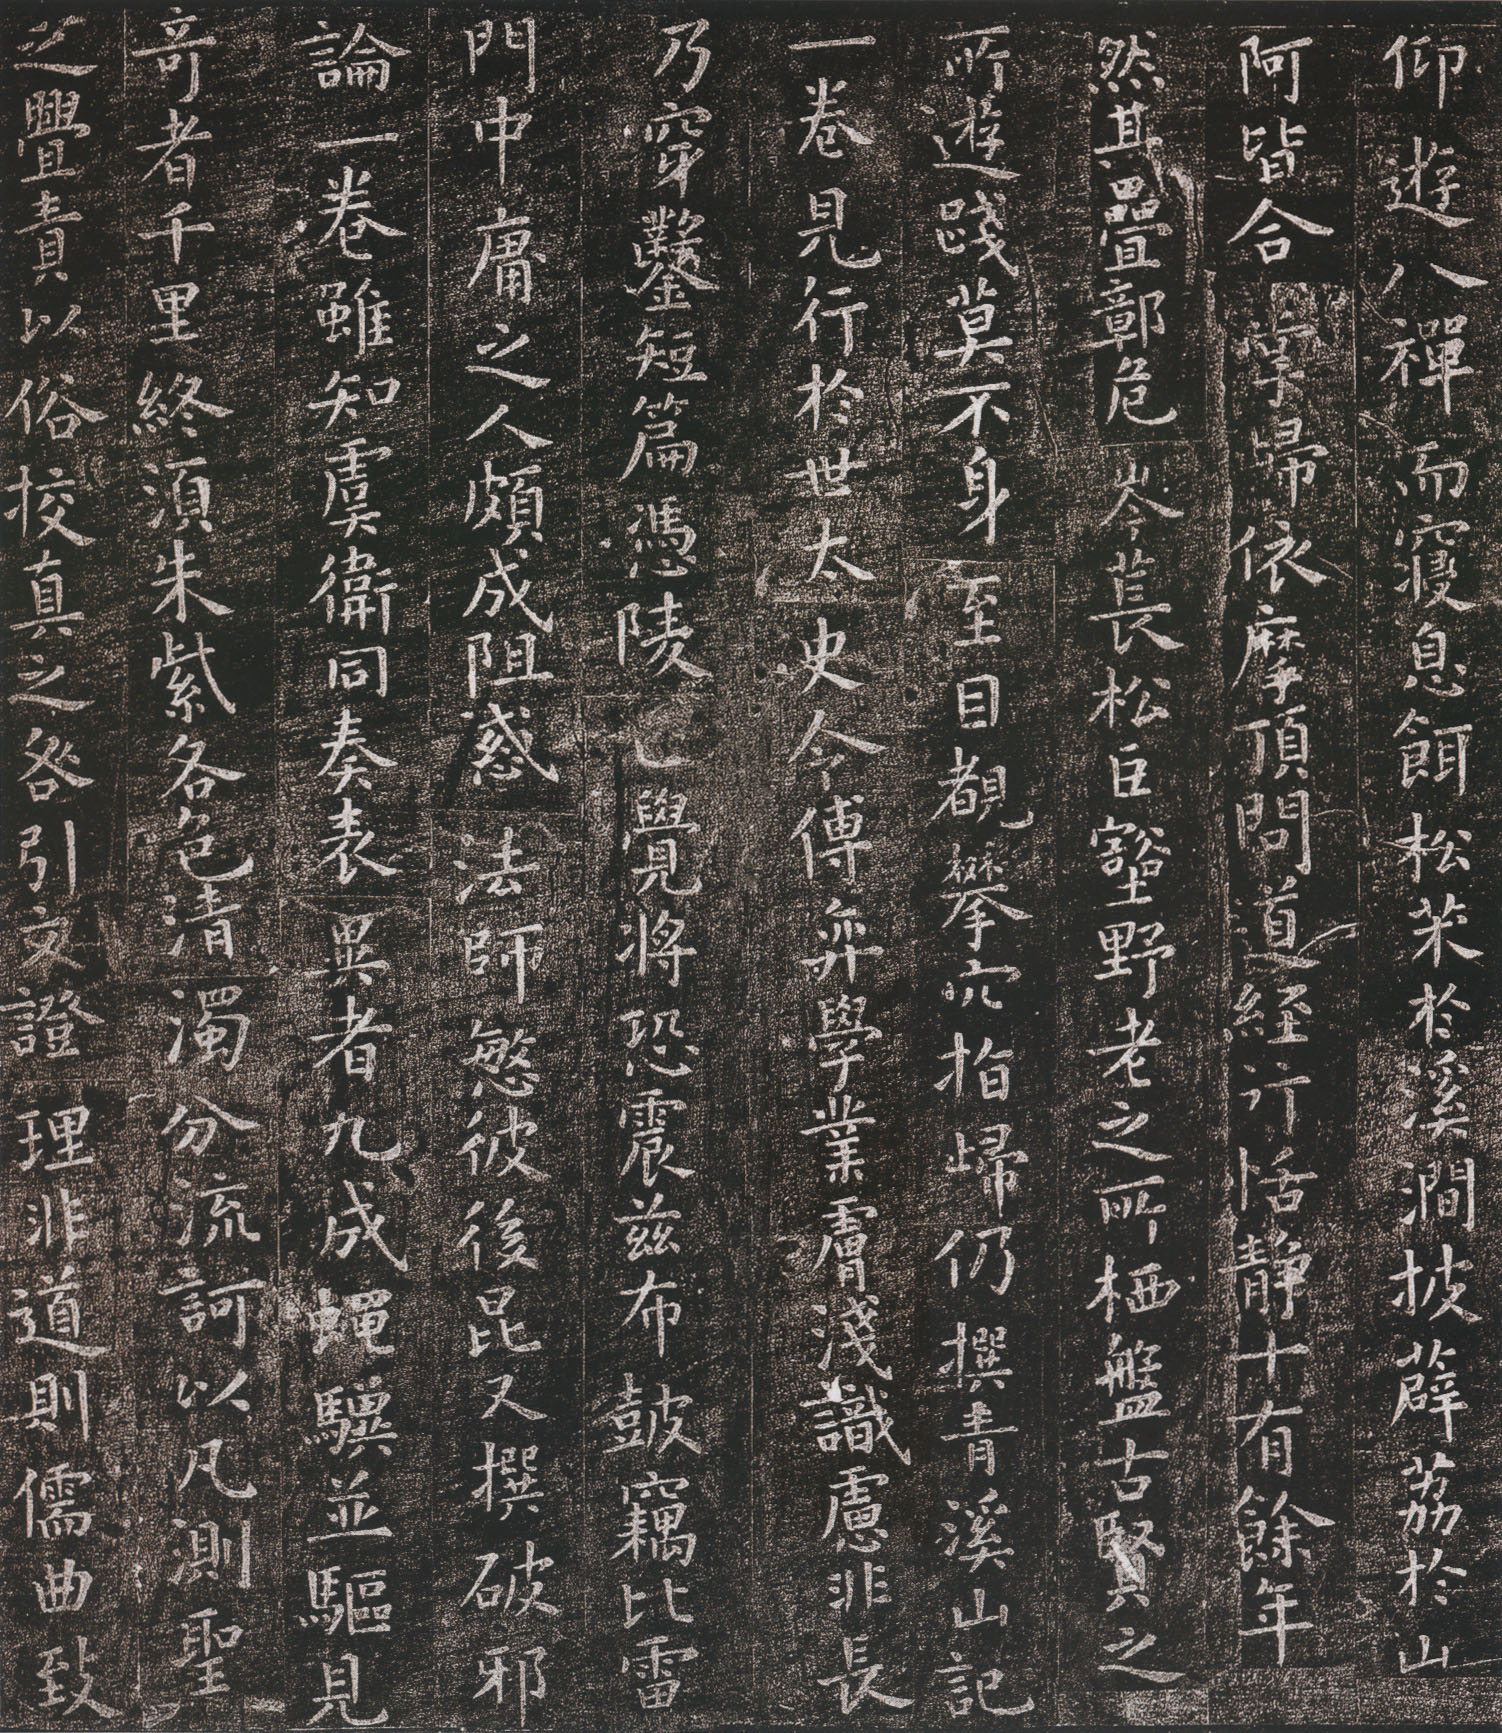 仰遊八禪而寢息餌松朮於溪澗披薜荔於山
阿皆合掌歸依摩頂問道經行恬靜十有餘年
然其疊鄣危岑萇松巨豁野老之所栖盤古賢之
所遊踐莫不身至目覩攀穴指歸仍撰青溪山記
一卷見行於世太史令傅弈學業膚淺識慮非長
乃穿鑿短篇憑陵正覺將恐震茲布鼓竊比雷
門中庸之人頗成阻惑法師慜彼後昆又撰破邪
論一卷雖知虞衛同奏表異者九成蠅驥並驅見
奇者千里終須朱紫各色清濁分流訶以凡測聖
之舋責以俗挍真之咎引文證理非道則儒曲致